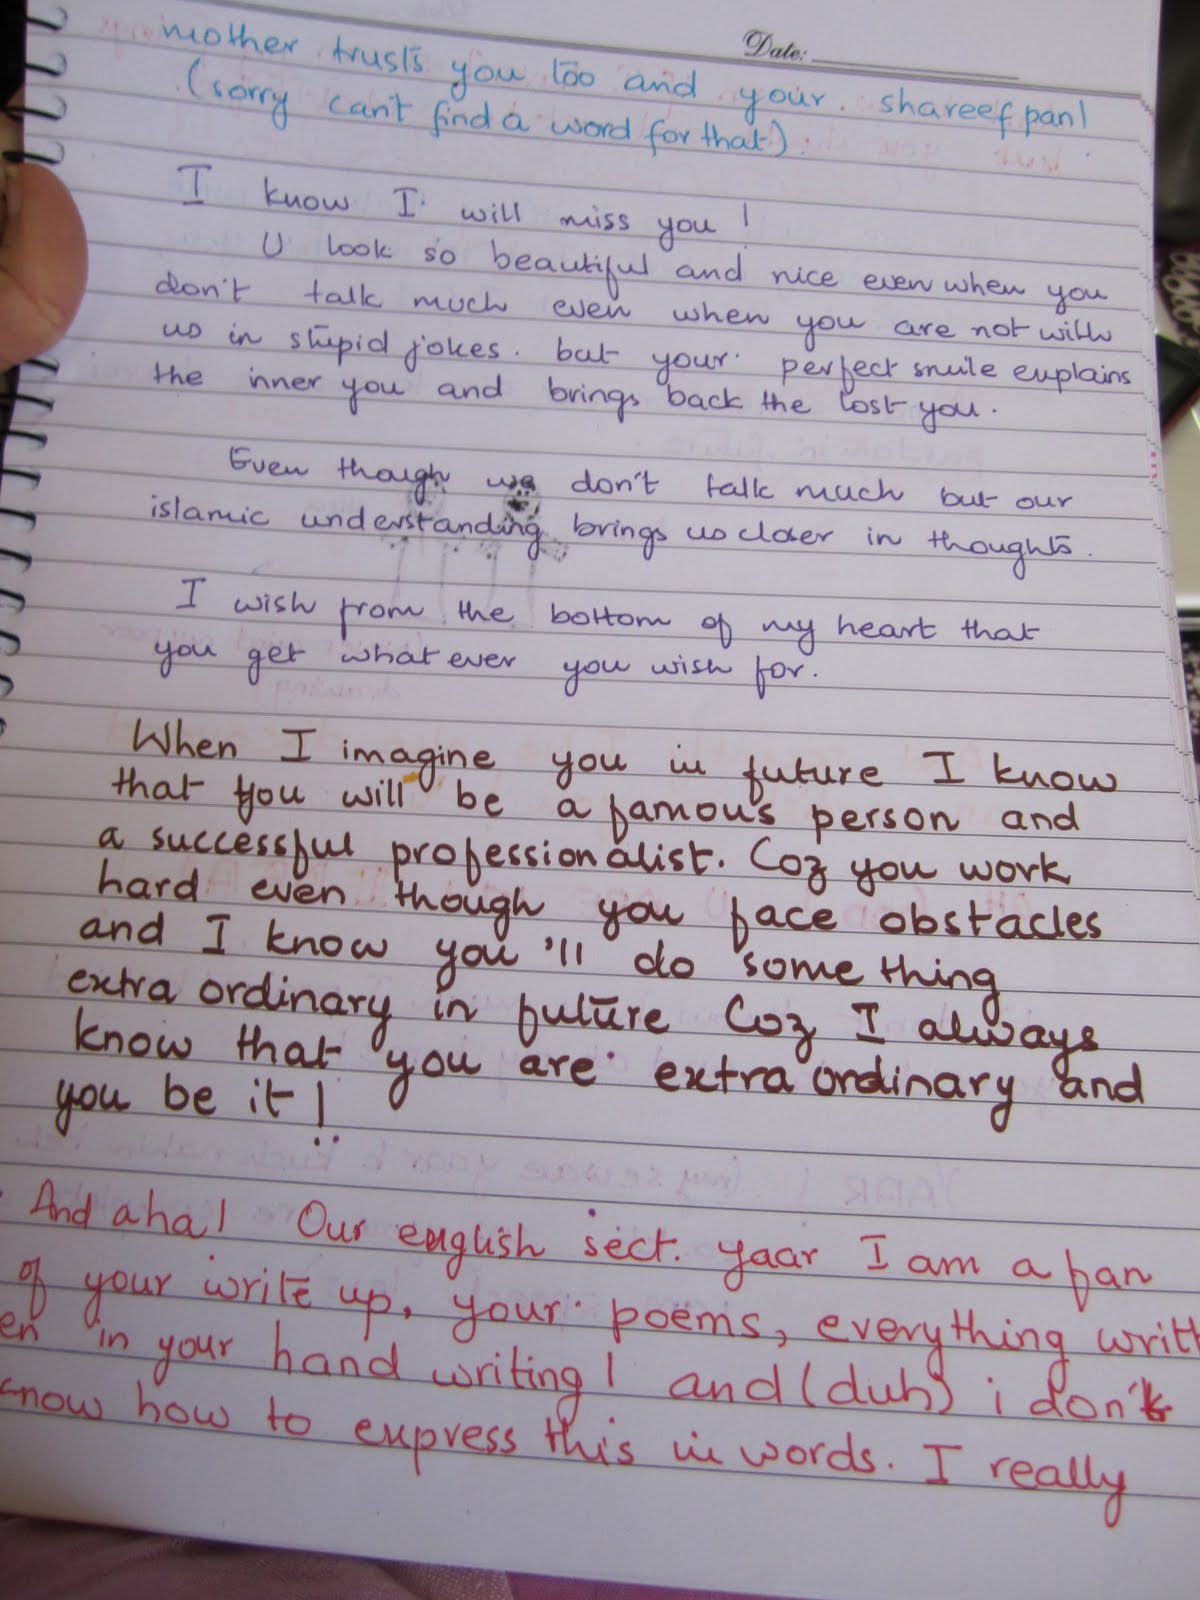 Date:
mother trusts you too and your shareefpan!
(sorry can't find a word for that).
I know I will miss you!
U look so beautiful and nice even when you
don't talk much even when you are not with
us in stupid jokes. but your perfect smile explains
the inner you and brings back the lost you.
Even though we don't talk much but our
islamic understanding brings us closer in thoughts.
I wish from the bottom of my heart that
you get what ever you wish for.
When I imagine you in future I know
that you will be a famous person and
a successful professionalist. Coz you work
hard even though you face obstacles
and I know you'll do some thing
extra ordinary in future Coz I always
know that you are extra ordinary and
you be it!
And aha! Our english sect. yaar I am a fan
of your write up, your poems, everything writt
en in your hand writing! and (duh) i don't
know how to express this in words. I really